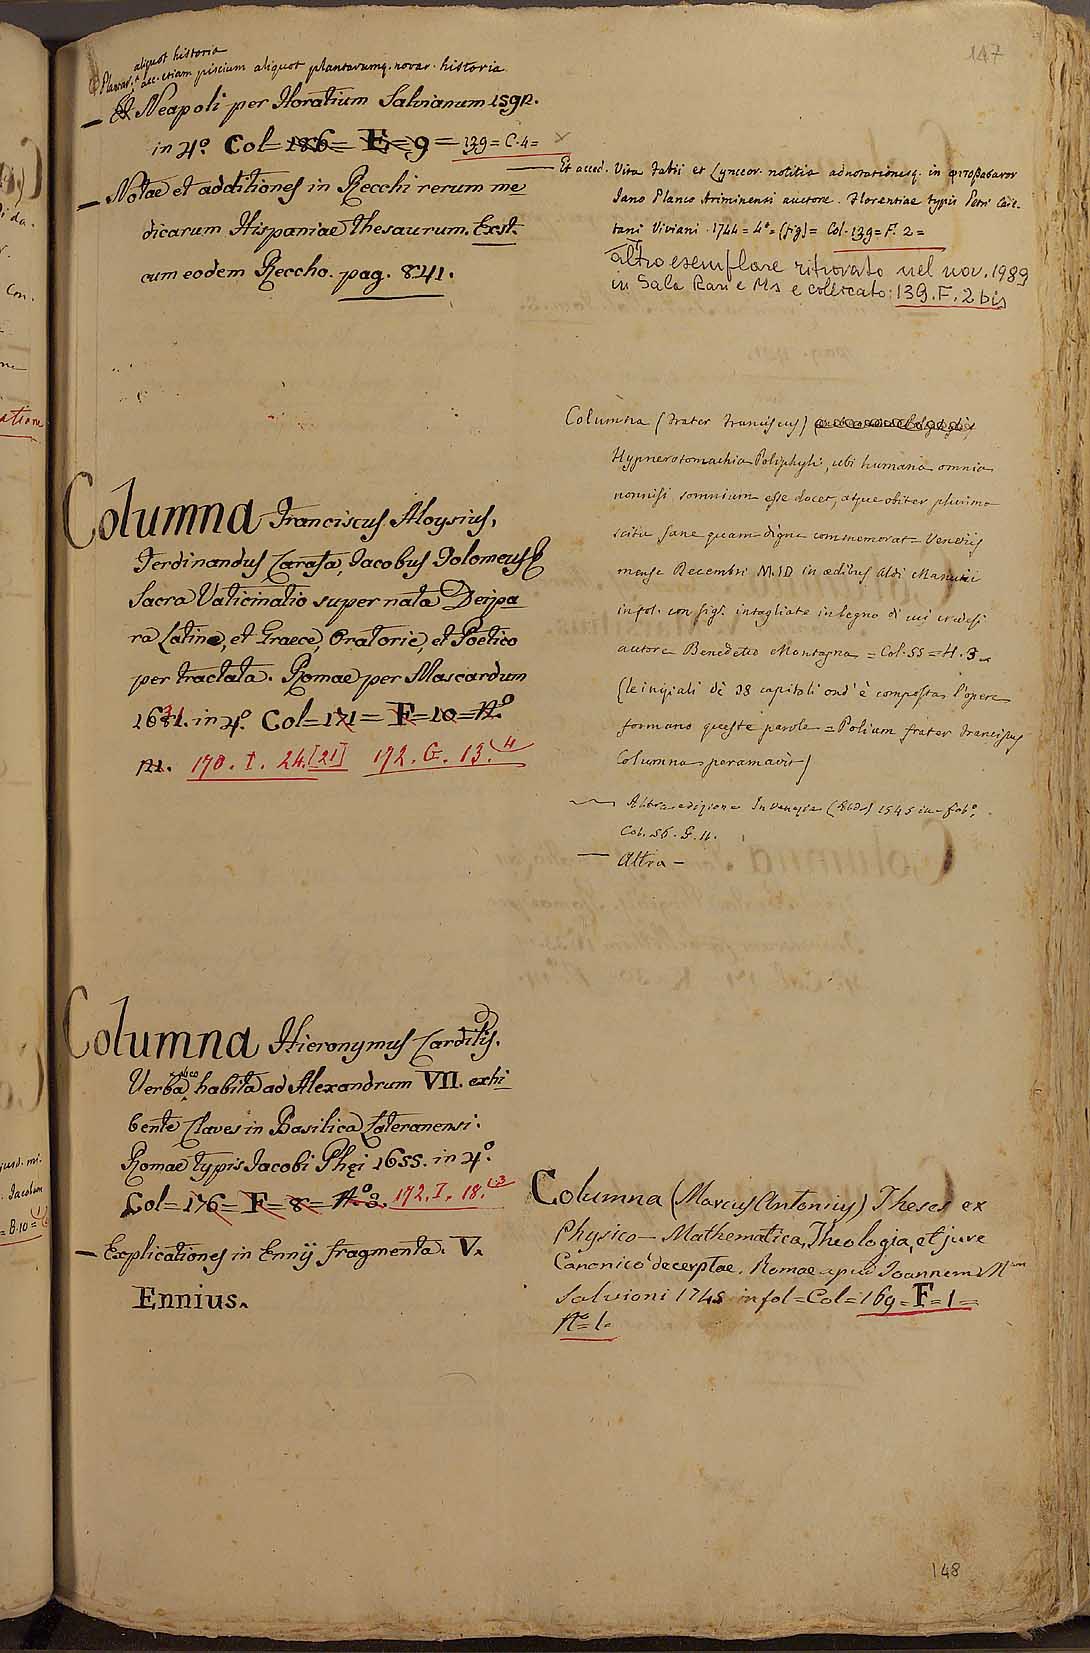 147
aliquot historia
Plantar. acc. etiam piscium aliquot plantarumq. novar. historia
— Neapoli per Horatium Salvianum 1592.
in 4º. Col=186= E=9= 139=C.4=
— Notae et additiones in Recchi rerum me
dicarum Hispaniae thesaurum. Exst.
cum eodem Reccho. pag. 841.
Columna Franciscus Aloysius,
Ferdinandus Carafa, Jacobus Ptolomeus
Sacra Vaticinatio super nata Deipa
ra Latine, et Graece, Oratorie, et Poetice
per tractata. Romae per Mascardum
1631. in 4º. Col=171= F=10=Nº.
170. I. 24.[21] 172. G. 13.(4
Columna Hieronymus Card
Verba habita ad Alexandrum VII. exhi
bente Claves in Basilica Lateranensi.
Romae typis Jacobi Phęi 1655. in 4º.
Col=176= F=8= Nº3. 172. I. 18.(3
— Explicationes in Ennij fragmenta. V.
Ennius.
— Et acced. Vita Fabii et Lynceor. notitia adnotationesq. in φυτοβάσανον
Jano Planco Ariminensi auctore. Florentiae typis Petri Caie-
tani Viviani. 1744=4º=(fig)= Col.139=F.2=
altro esemplare ritrovato nel nov. 1989
in Sala Rari e Ms e collocato: 139.F.2 bis
Columna (Frater Franciscus)
Hypnerotomachia Poliphyli, ubi humana omnia
nonnisi somnium esse docet, atque obiter plurima
scitu sane quam digna commemorat= Venetiis
mense Decembri M.ID in aedibus Aldi Manutii
in fol. con figˢ. intagliate in legno di cui credesi
autore Benedetto Montagna =Col.55=H.3.
(le iniziali di 38 capitoli ond'è composta l'opera
formano queste parole =Poliam frater Franciscus
Columna peramavit)
Altra edizione In Venezia 1545 in folº.
Col. 56. G. 11.
— Altra —
Columna (Marcus Antonius) Theses ex
Physico-Mathematica, Theologia, et jure
Canonico decerptae. Romae apud Joannem Mam
Salvioni 1745 in fol=Col=169=F=1=
Nº=1=
148